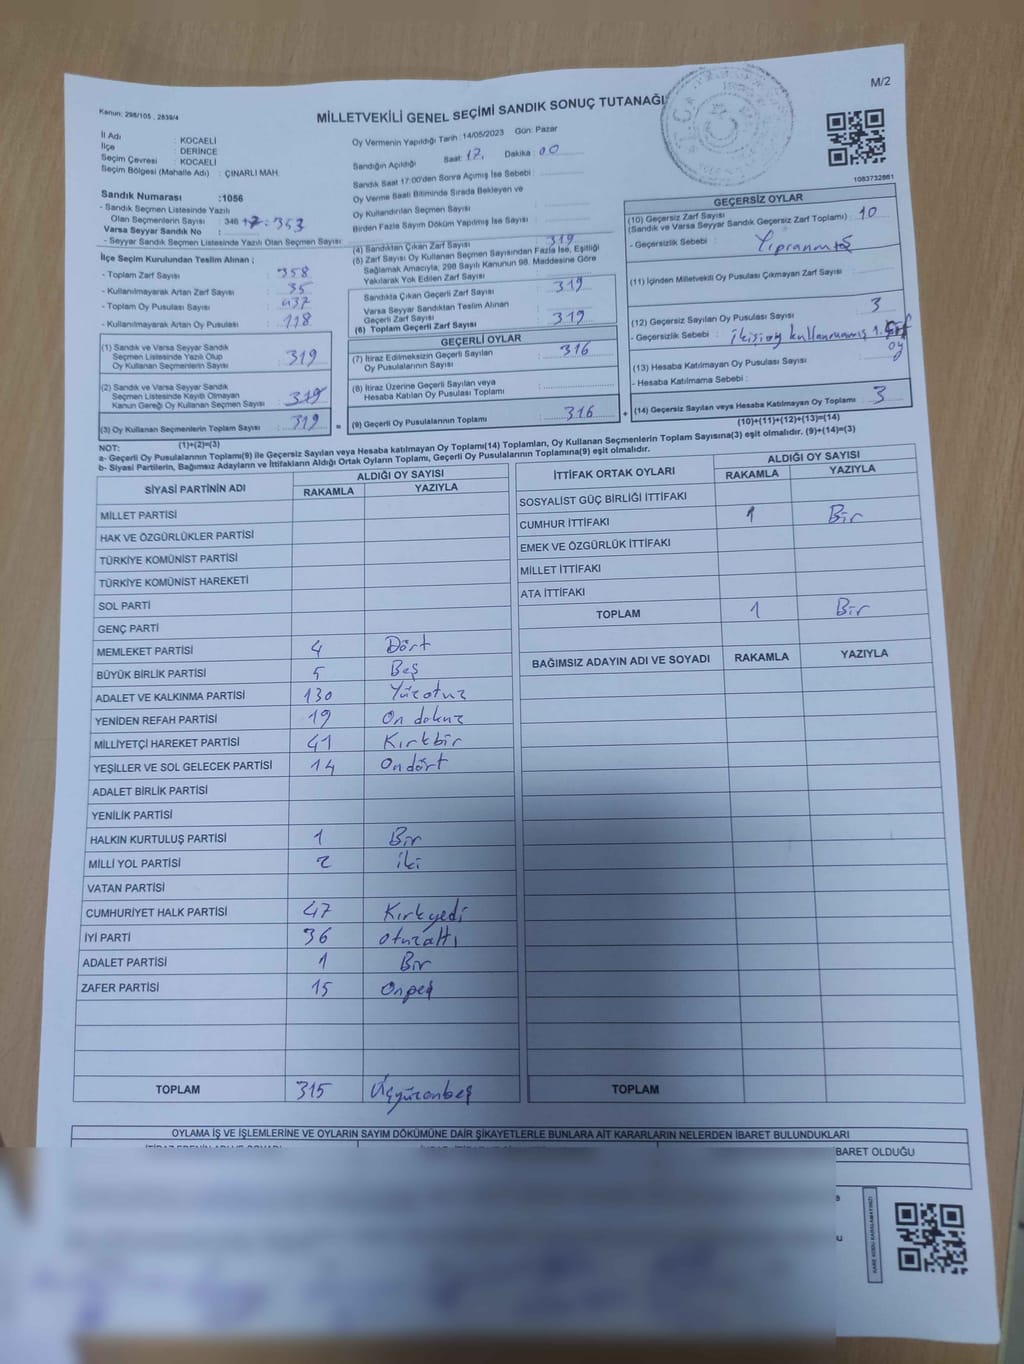 M/2
Kanun; 298/105 , 2839/4
MİLLETVEKİLİ GENEL SEÇİMİ SANDIK SONUÇ TUTANAĞI
İl Adı : KOCAELİ
İlçe : DERİNCE
Seçim Çevresi : KOCAELİ
Seçim Bölgesi (Mahalle Adı) : ÇINARLI MAH.
Sandık Numarası :1056
- Sandık Seçmen Listesinde Yazılı
Olan Seçmenlerin Sayısı : 346 +7 = 353
Varsa Seyyar Sandık No :
- Seyyar Sandık Seçmen Listesinde Yazılı Olan Seçmen Sayısı :
İlçe Seçim Kurulundan Teslim Alınan ;
- Toplam Zarf Sayısı : 358
- Kullanılmayarak Artan Zarf Sayısı : 35
- Toplam Oy Pusulası Sayısı : 437
- Kullanılmayarak Artan Oy Pusulası : 118
(1) Sandık ve Varsa Seyyar Sandık
Seçmen Listesinde Yazılı Olup
Oy Kullanan Seçmenlerin Sayısı : 319
(2) Sandık ve Varsa Seyyar Sandık
Seçmen Listesinde Kayıtlı Olmayan
Kanun Gereği Oy Kullanan Seçmen Sayısı :
(3) Oy Kullanan Seçmenlerin Toplam Sayısı : 319
Oy Vermenin Yapıldığı Tarih : 14/05/2023 Gün: Pazar
Sandığın Açıldığı Saat: 17. Dakika : 00
Sandık Saat 17:00'den Sonra Açılmış İse Sebebi :
Oy Verme Saati Bitiminde Sırada Bekleyen ve
Oy Kullandırılan Seçmen Sayısı :
Birden Fazla Sayım Döküm Yapılmış İse Sayısı :
(4) Sandıktan Çıkan Zarf Sayısı : 319
(5) Zarf Sayısı Oy Kullanan Seçmen Sayısından Fazla İse, Eşitliği
Sağlamak Amacıyla, 298 Sayılı Kanunun 98. Maddesine Göre
Yakılarak Yok Edilen Zarf Sayısı :
Sandıkta Çıkan Geçerli Zarf Sayısı : 319
Varsa Seyyar Sandıktan Teslim Alınan
Geçerli Zarf Sayısı :
(6) Toplam Geçerli Zarf Sayısı : 319
GEÇERLİ OYLAR
(7) İtiraz Edilmeksizin Geçerli Sayılan
Oy Pusulalarının Sayısı : 316
(8) İtiraz Üzerine Geçerli Sayılan veya
Hesaba Katılan Oy Pusulası Toplamı :
= (9) Geçerli Oy Pusulalarının Toplamı : 316
1083732861
GEÇERSİZ OYLAR
(10) Geçersiz Zarf Sayısı
(Sandık ve Varsa Seyyar Sandık Geçersiz Zarf Toplamı) : 10
- Geçersizlik Sebebi : Yıpranmış
(11) İçinden Milletvekili Oy Pusulası Çıkmayan Zarf Sayısı :
(12) Geçersiz Sayılan Oy Pusulası Sayısı : 3
- Geçersizlik Sebebi : ikisi oy kullanmamış 1. oy
(13) Hesaba Katılmayan Oy Pusulası Sayısı :
- Hesaba Katılmama Sebebi :
+ (14) Geçersiz Sayılan veya Hesaba Katılmayan Oy Toplamı : 3
(1)+(2)=(3)
(10)+(11)+(12)+(13)=(14)
NOT:
a- Geçerli Oy Pusulalarının Toplamı(9) ile Geçersiz Sayılan veya Hesaba Katılmayan Oy Toplamı(14) Toplamları, Oy Kullanan Seçmenlerin Toplam Sayısına(3) eşit olmalıdır. (9)+(14)=(3)
b- Siyasi Partilerin, Bağımsız Adayların ve İttifakların Aldığı Ortak Oyların Toplamı, Geçerli Oy Pusulalarının Toplamına(9) eşit olmalıdır.
SİYASİ PARTİNİN ADI
ALDIĞI OY SAYISI
RAKAMLA YAZIYLA
MİLLET PARTİSİ
HAK VE ÖZGÜRLÜKLER PARTİSİ
TÜRKİYE KOMÜNİST PARTİSİ
TÜRKİYE KOMÜNİST HAREKETİ
SOL PARTİ
GENÇ PARTİ
MEMLEKET PARTİSİ 4 Dört
BÜYÜK BİRLİK PARTİSİ 5 Beş
ADALET VE KALKINMA PARTİSİ 130 Yüzotuz
YENİDEN REFAH PARTİSİ 19 On dokuz
MİLLİYETÇİ HAREKET PARTİSİ 41 Kırkbir
YEŞİLLER VE SOL GELECEK PARTİSİ 14 Ondört
ADALET BİRLİK PARTİSİ
YENİLİK PARTİSİ
HALKIN KURTULUŞ PARTİSİ 1 Bir
MİLLİ YOL PARTİSİ 2 iki
VATAN PARTİSİ
CUMHURİYET HALK PARTİSİ 47 Kırkyedi
İYİ PARTİ 36 otuzaltı
ADALET PARTİSİ 1 Bir
ZAFER PARTİSİ 15 Onbeş
TOPLAM 315 Üçyüzonbeş
İTTİFAK ORTAK OYLARI
ALDIĞI OY SAYISI
RAKAMLA YAZIYLA
SOSYALİST GÜÇ BİRLİĞİ İTTİFAKI
CUMHUR İTTİFAKI 1 Bir
EMEK VE ÖZGÜRLÜK İTTİFAKI
MİLLET İTTİFAKI
ATA İTTİFAKI
TOPLAM 1 Bir
BAĞIMSIZ ADAYIN ADI VE SOYADI RAKAMLA YAZIYLA
TOPLAM
OYLAMA İŞ VE İŞLEMLERİNE VE OYLARIN SAYIM DÖKÜMÜNE DAİR ŞİKAYETLERLE BUNLARA AİT KARARLARIN NELERDEN İBARET BULUNDUKLARI
BARET OLDUĞU